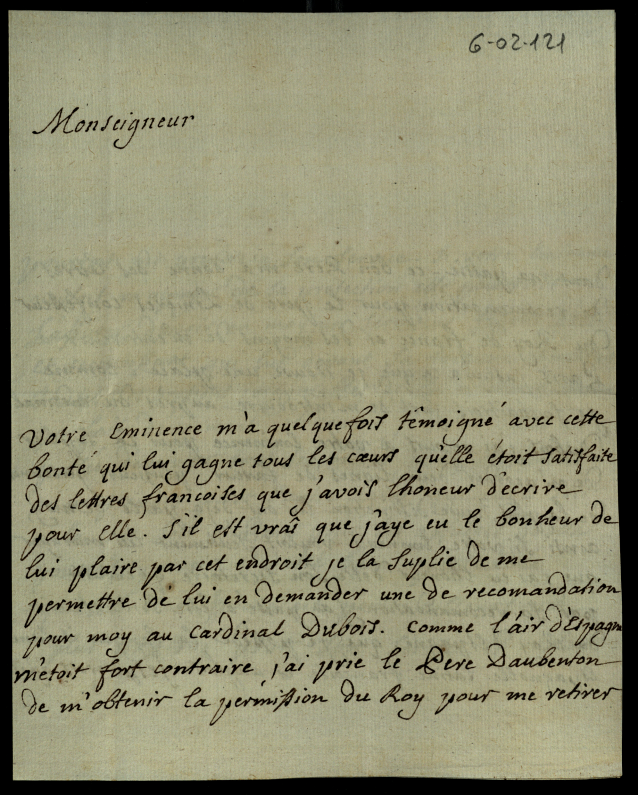 6-02-121
Monseigneur
Votre Eminence m'a quelquefois têmoigné avec cette
bonté qui lui gagne tous les cœurs qu'elle étoit satisfaite
des lettres francoises que j'avois lhoneur d'ecrire
pour elle. s'il est vrai que j'aye eu le bonheur de
lui plaire par cet endroit je la suplie de me
permettre de lui en demander une de recomandation
pour moy au Cardinal Dubois. comme l'air d'Espagne
m'etoit fort contraire j'ai prie le Pere Daubenton
de m'obtenir la permission du Roy pour me retirer